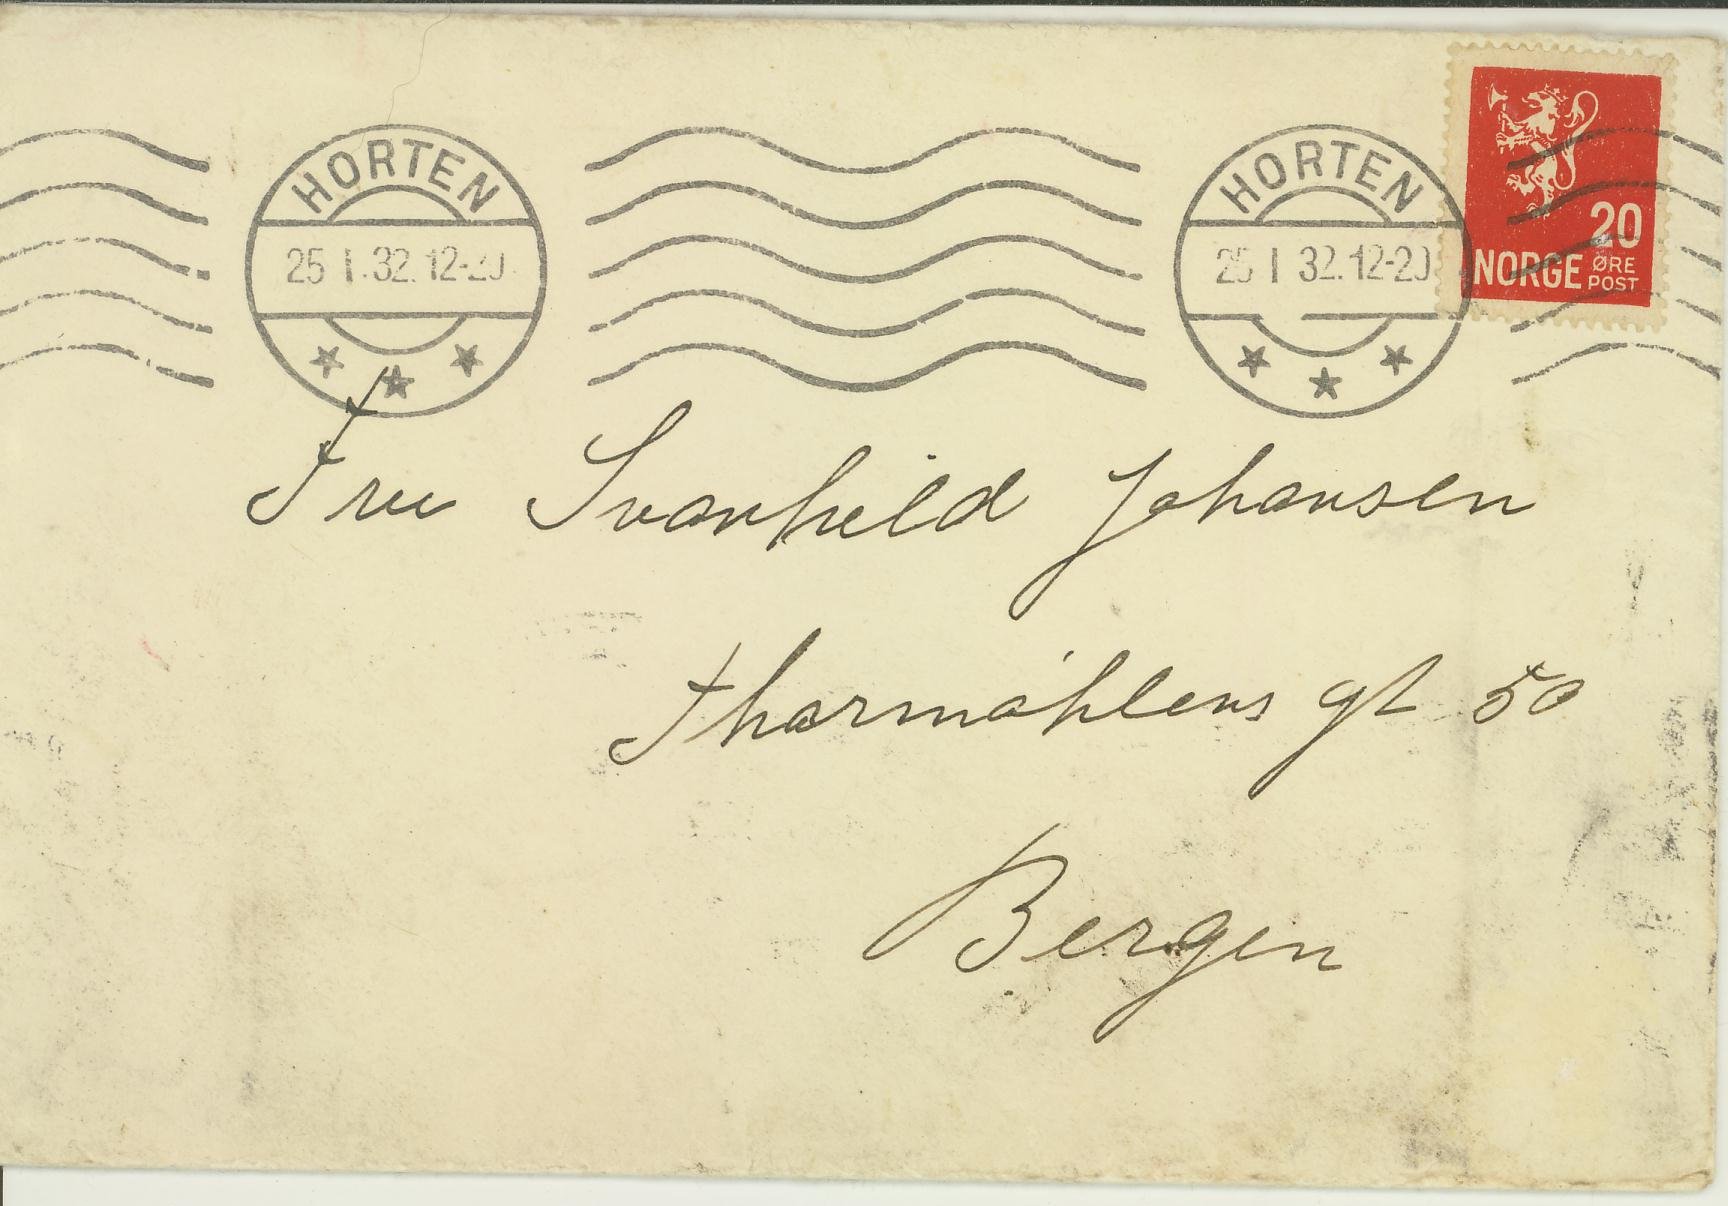 HORTEN
25 I. 32. 12-20
HORTEN
25 I 32. 12-20
20
NORGE ØRE
POST
Fru Svanhild Johansen
Thormøhlens gt 50
Bergen